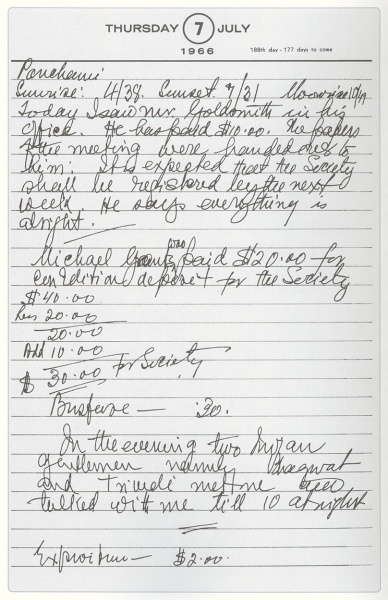 THURSDAY 7 JULY
1966
188th day - 177 days to come
Panchami
Sunrise: 4/38. Sunset 7/31 Moonrise
Today I saw Mr. Goldsmith in his
office. He has paid $10.00. The papers
of the meeting were handed over to
him. It is expected that the Society
shall be registered by the next
week. He says everything is
alright.
Michael was paid $20.00 for
deposit for the Society
$40.00
Less 20.00
20.00
Add 10.00
$ 30.00 for Society
Busfare — .30.
In the evening two Indian
gentlemen namely Bhagwat
and Trivedi met me and
talked with me till 10 at night
Expenditure — $2.00.